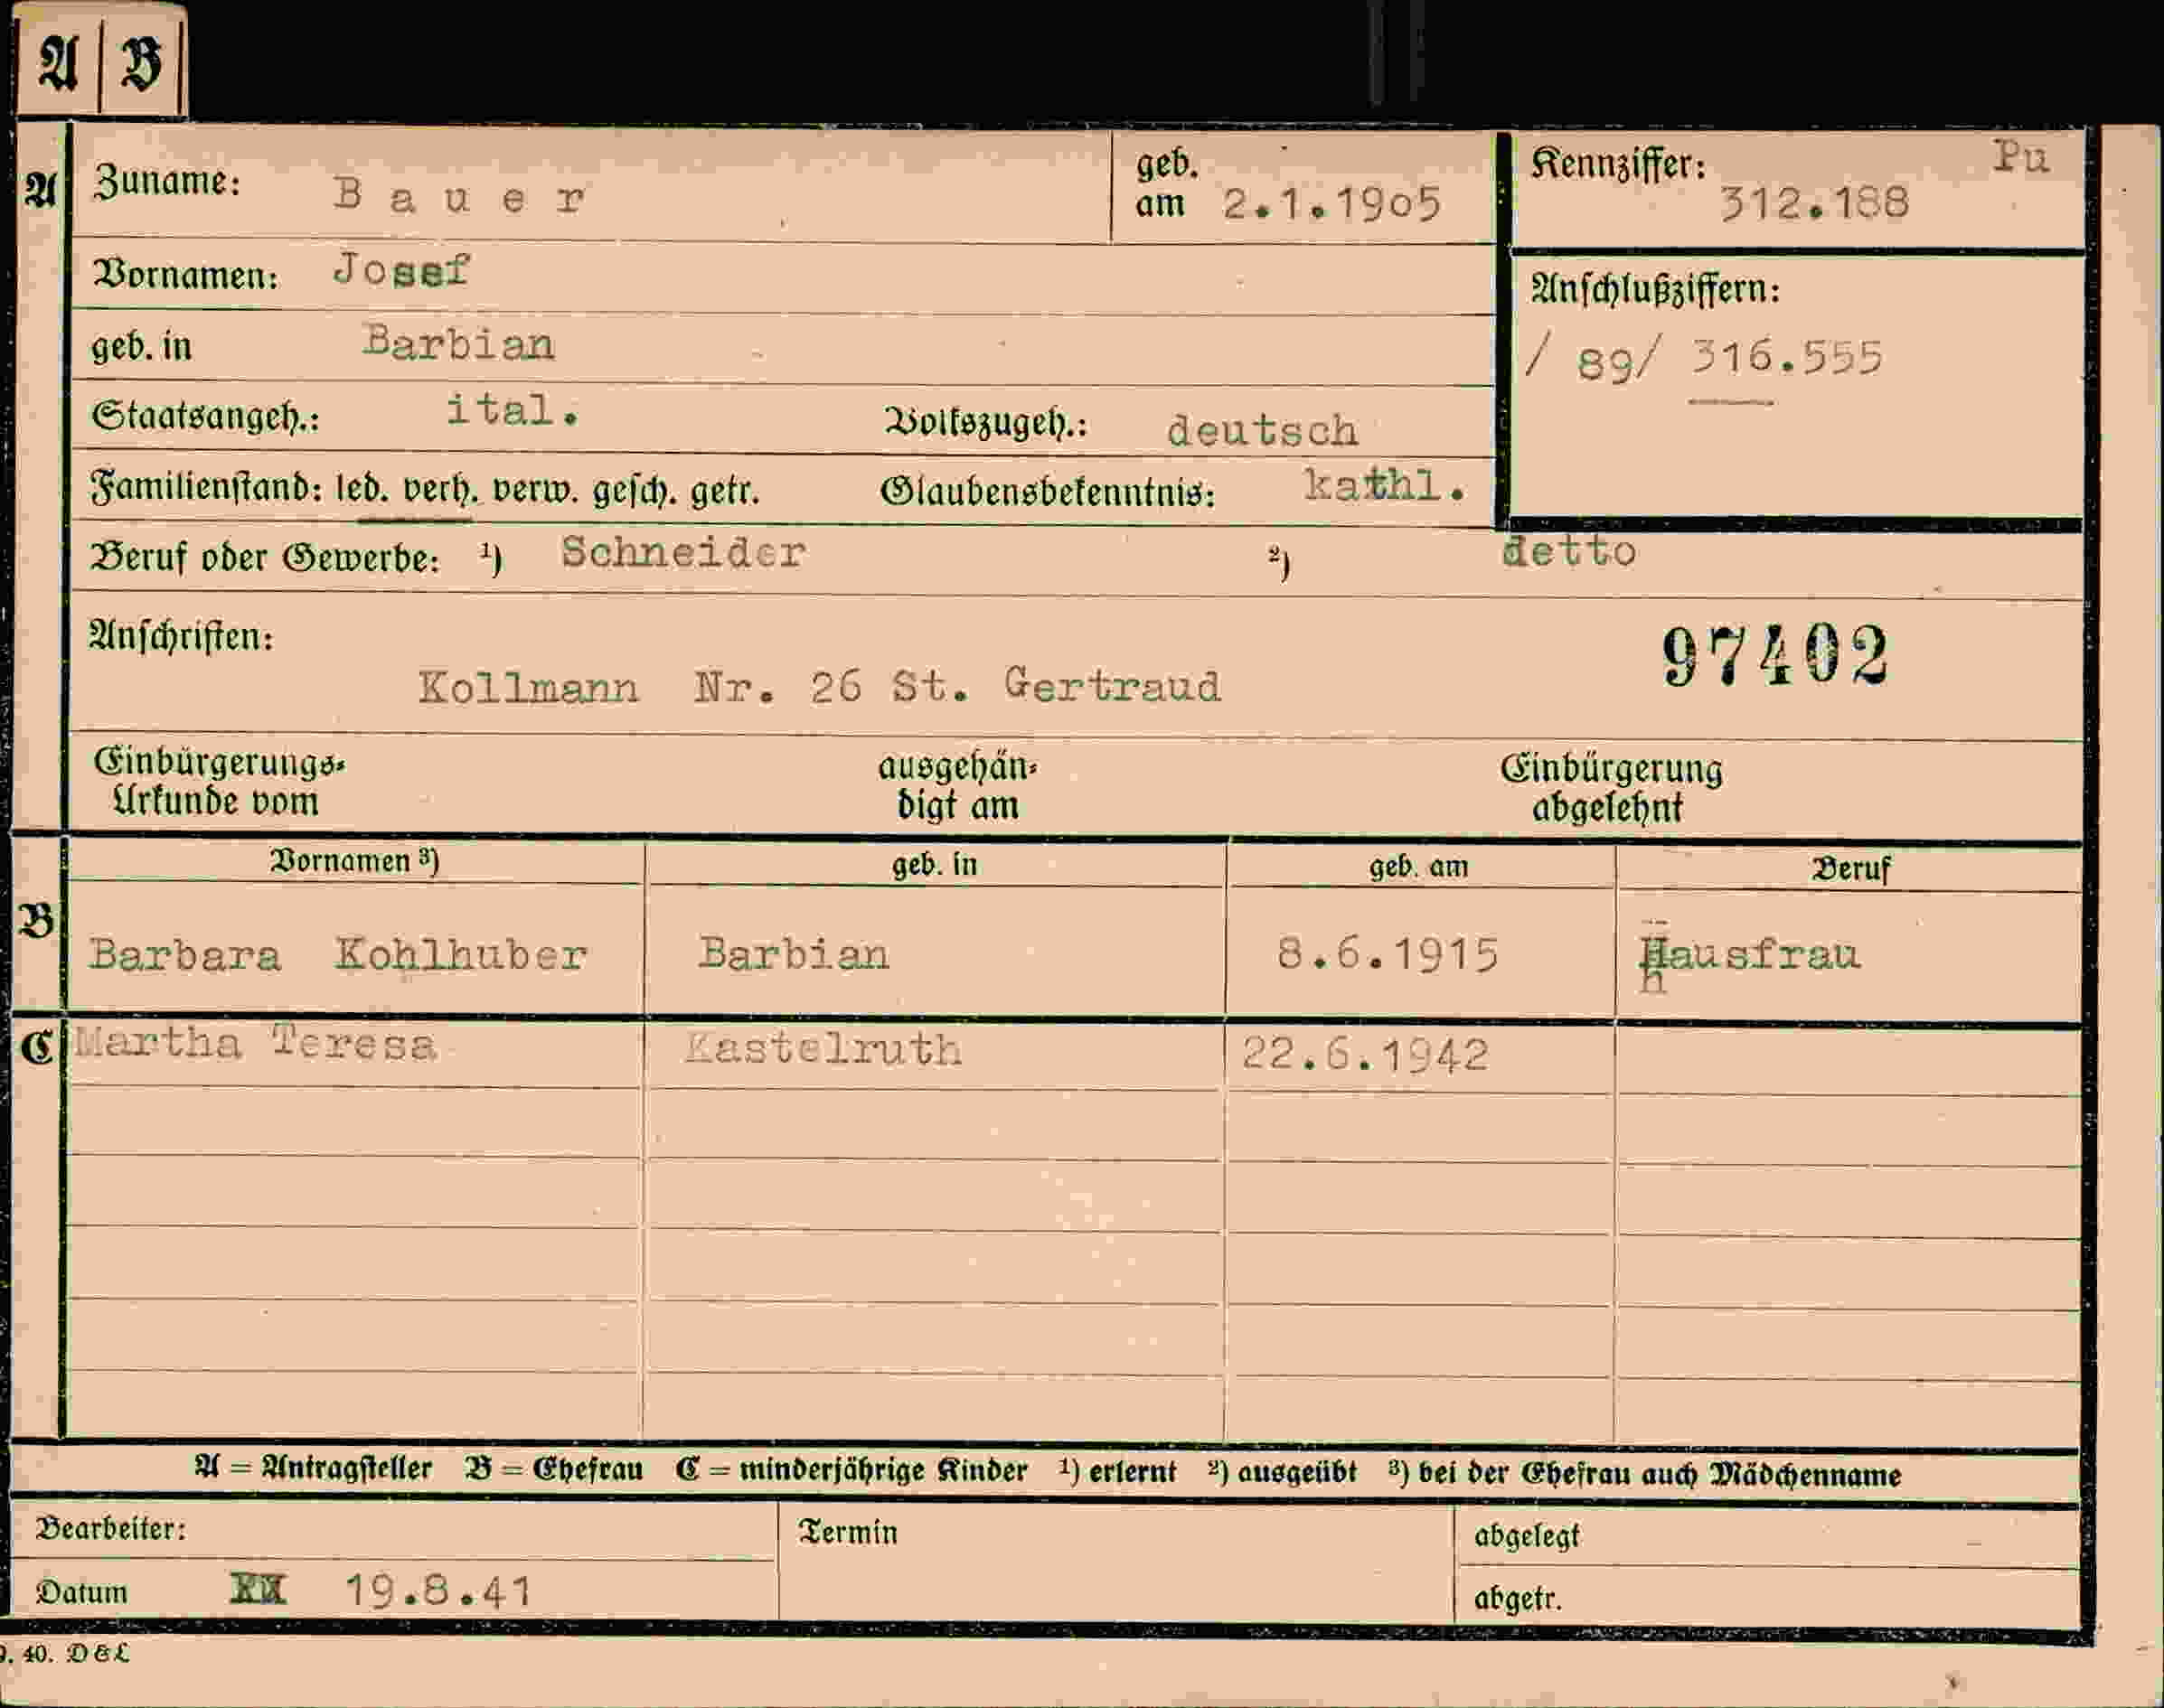 A B
A Zuname: Bauer geb. am 2.1.1905 Kennziffer: Pu 312.188
Vornamen: Josef
Anschlußziffern:
geb. in Barbian / 89/ 316.555
Staatsangeh.: ital. Volkszugeh.: deutsch
Familienstand: led. verh. verw. gesch. getr. Glaubensbekenntnis: kathl.
Beruf oder Gewerbe: ¹) Schneider ²) detto
Anschriften: 97402
Kollmann Nr. 26 St. Gertraud
Einbürgerungs- ausgehän- Einbürgerung
Urkunde vom digt am abgelehnt
Vornamen ³) geb. in geb. am Beruf
B Barbara Kohlhuber Barbian 8.6.1915 Hausfrau
C Martha Teresa Kastelruth 22.6.1942
A = Antragsteller B = Ehefrau C = minderjährige Kinder ¹) erlernt ²) ausgeübt ³) bei der Ehefrau auch Mädchenname
Bearbeiter: Termin abgelegt
Datum 19.8.41 abgetr.
40. D&L